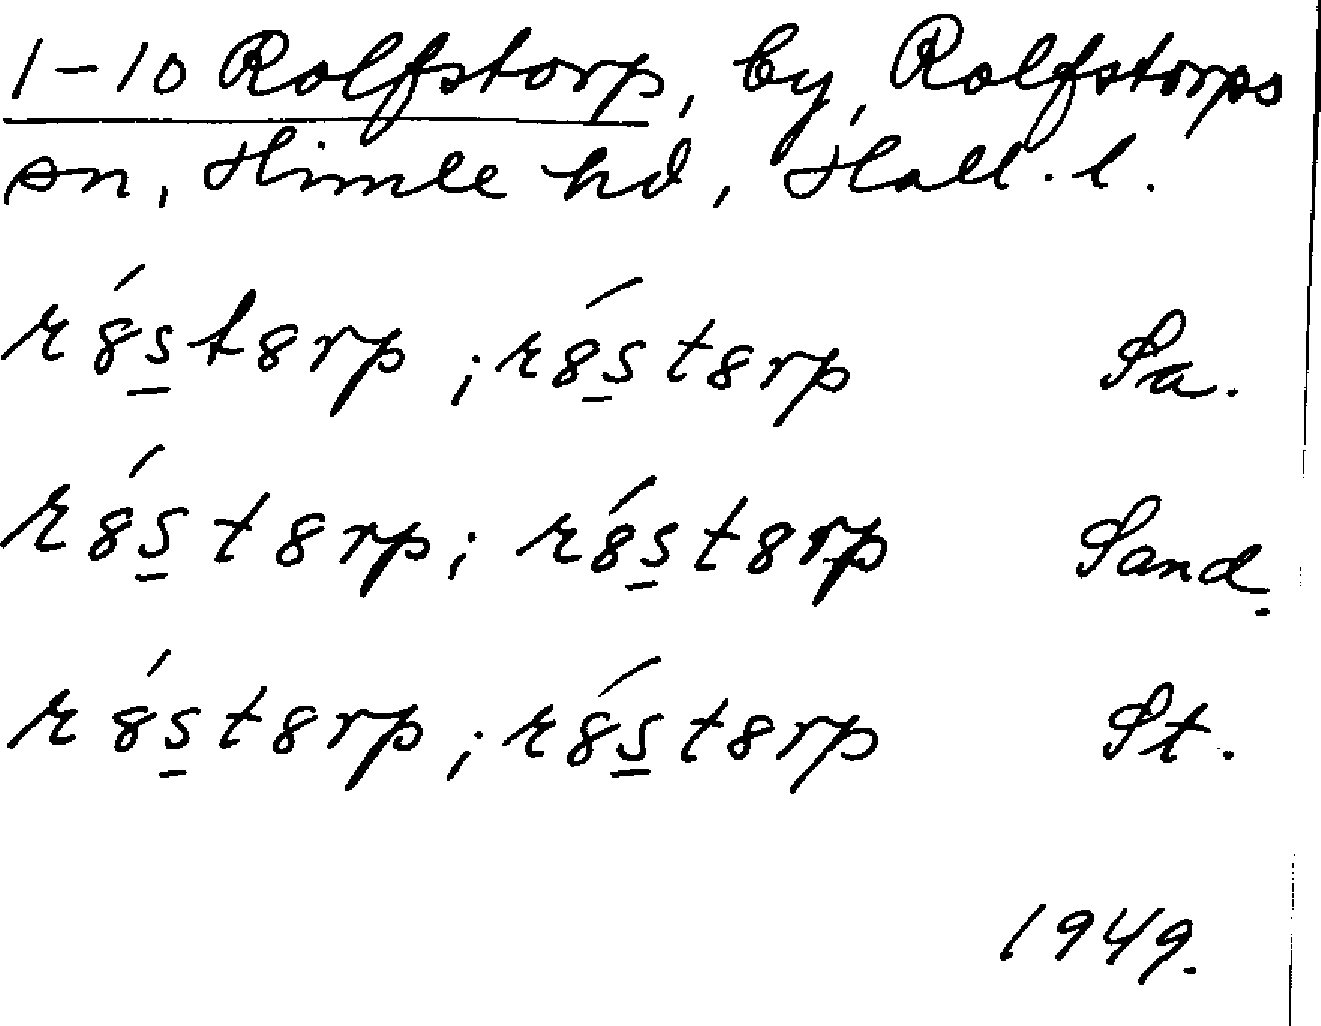 1-10 Rolfstorp, by, Rolfstorps
sn, Himle hd, Hall. l.
r8́s̲t8rp; r8́s̲t8rp Sa.
r8́s̲t8rp; r8́s̲t8rp Sand.
r8́s̲t8rp; r8́s̲t8rp St.
1949.